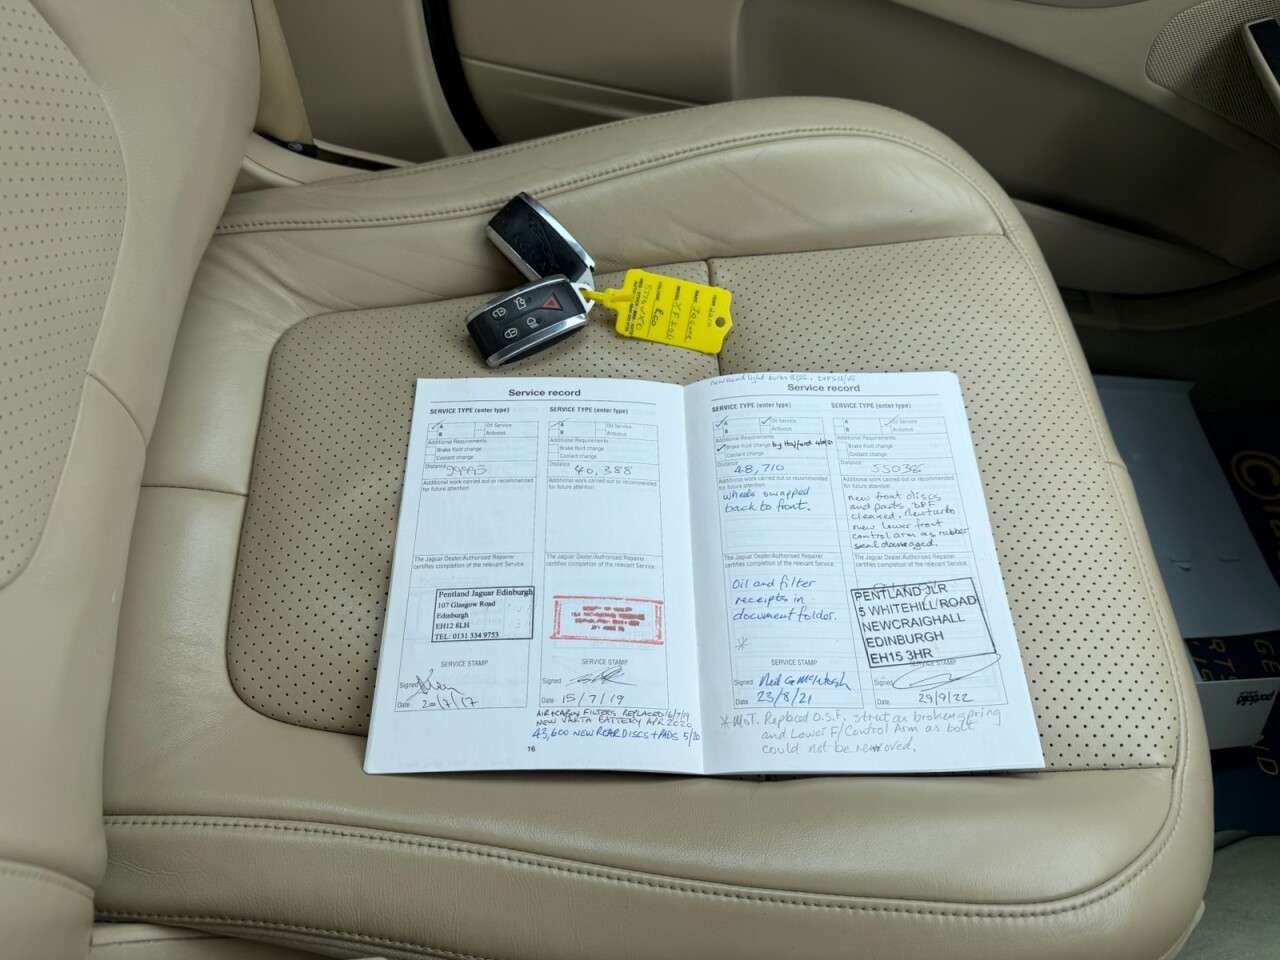 Service record
SERVICE TYPE (enter type)
A
Oil Service
B
Antivirus
Additional Requirements
Brake fluid change
Coolant change
Distance
29995
Additional work carried out or recommended
for future attention
The Jaguar Dealer/Authorised Repairer
certifies completion of the relevant Service.
Pentland Jaguar Edinburgh
107 Glasgow Road
Edinburgh
EH12 8LH
TEL: 0131 334 9753
SERVICE STAMP
Signed
Date 20/7/17
SERVICE TYPE (enter type)
A
Oil Service
B
Additional Requirements
Brake fluid change
Coolant change
Distance
40,388
Additional work carried out or recommended
for future attention
The Jaguar Dealer/Authorised Repairer
certifies completion of the relevant Service.
SERVICE STAMP
Signed
Date 15/7/19
FILTERS REPLACED
NEW VARTA BATTERY APR 2020
43,600 NEW REAR DISCS + PADS 5/20
16
Service record
SERVICE TYPE (enter type)
A
Oil Service
B
Additional Requirements
Brake fluid change
Coolant change
Distance
48,710
Additional work carried out or recommended
for future attention
Wheels swapped
back to front.
The Jaguar Dealer/Authorised Repairer
certifies completion of the relevant Service.
Oil and filter
receipts in
document folder.
*
SERVICE STAMP
Signed
Date 23/8/21
SERVICE TYPE (enter type)
A
Oil Service
B
Additional Requirements
Brake fluid change
Coolant change
Distance
Additional work carried out or recommended
for future attention
new front discs
and pads, DPF
cleaned. New turbo
new lower front
control arm as rubber
seal damaged.
The Jaguar Dealer/Authorised Repairer
certifies completion of the relevant Service.
PENTLAND JLR
5 WHITEHILL ROAD
NEWCRAIGHALL
EDINBURGH
EH15 3HR
SERVICE STAMP
Signed
Date 29/9/22
* MOT. Replaced O.S.F. strut as broken spring
and Lower F/Control Arm as bolt
could not be removed.